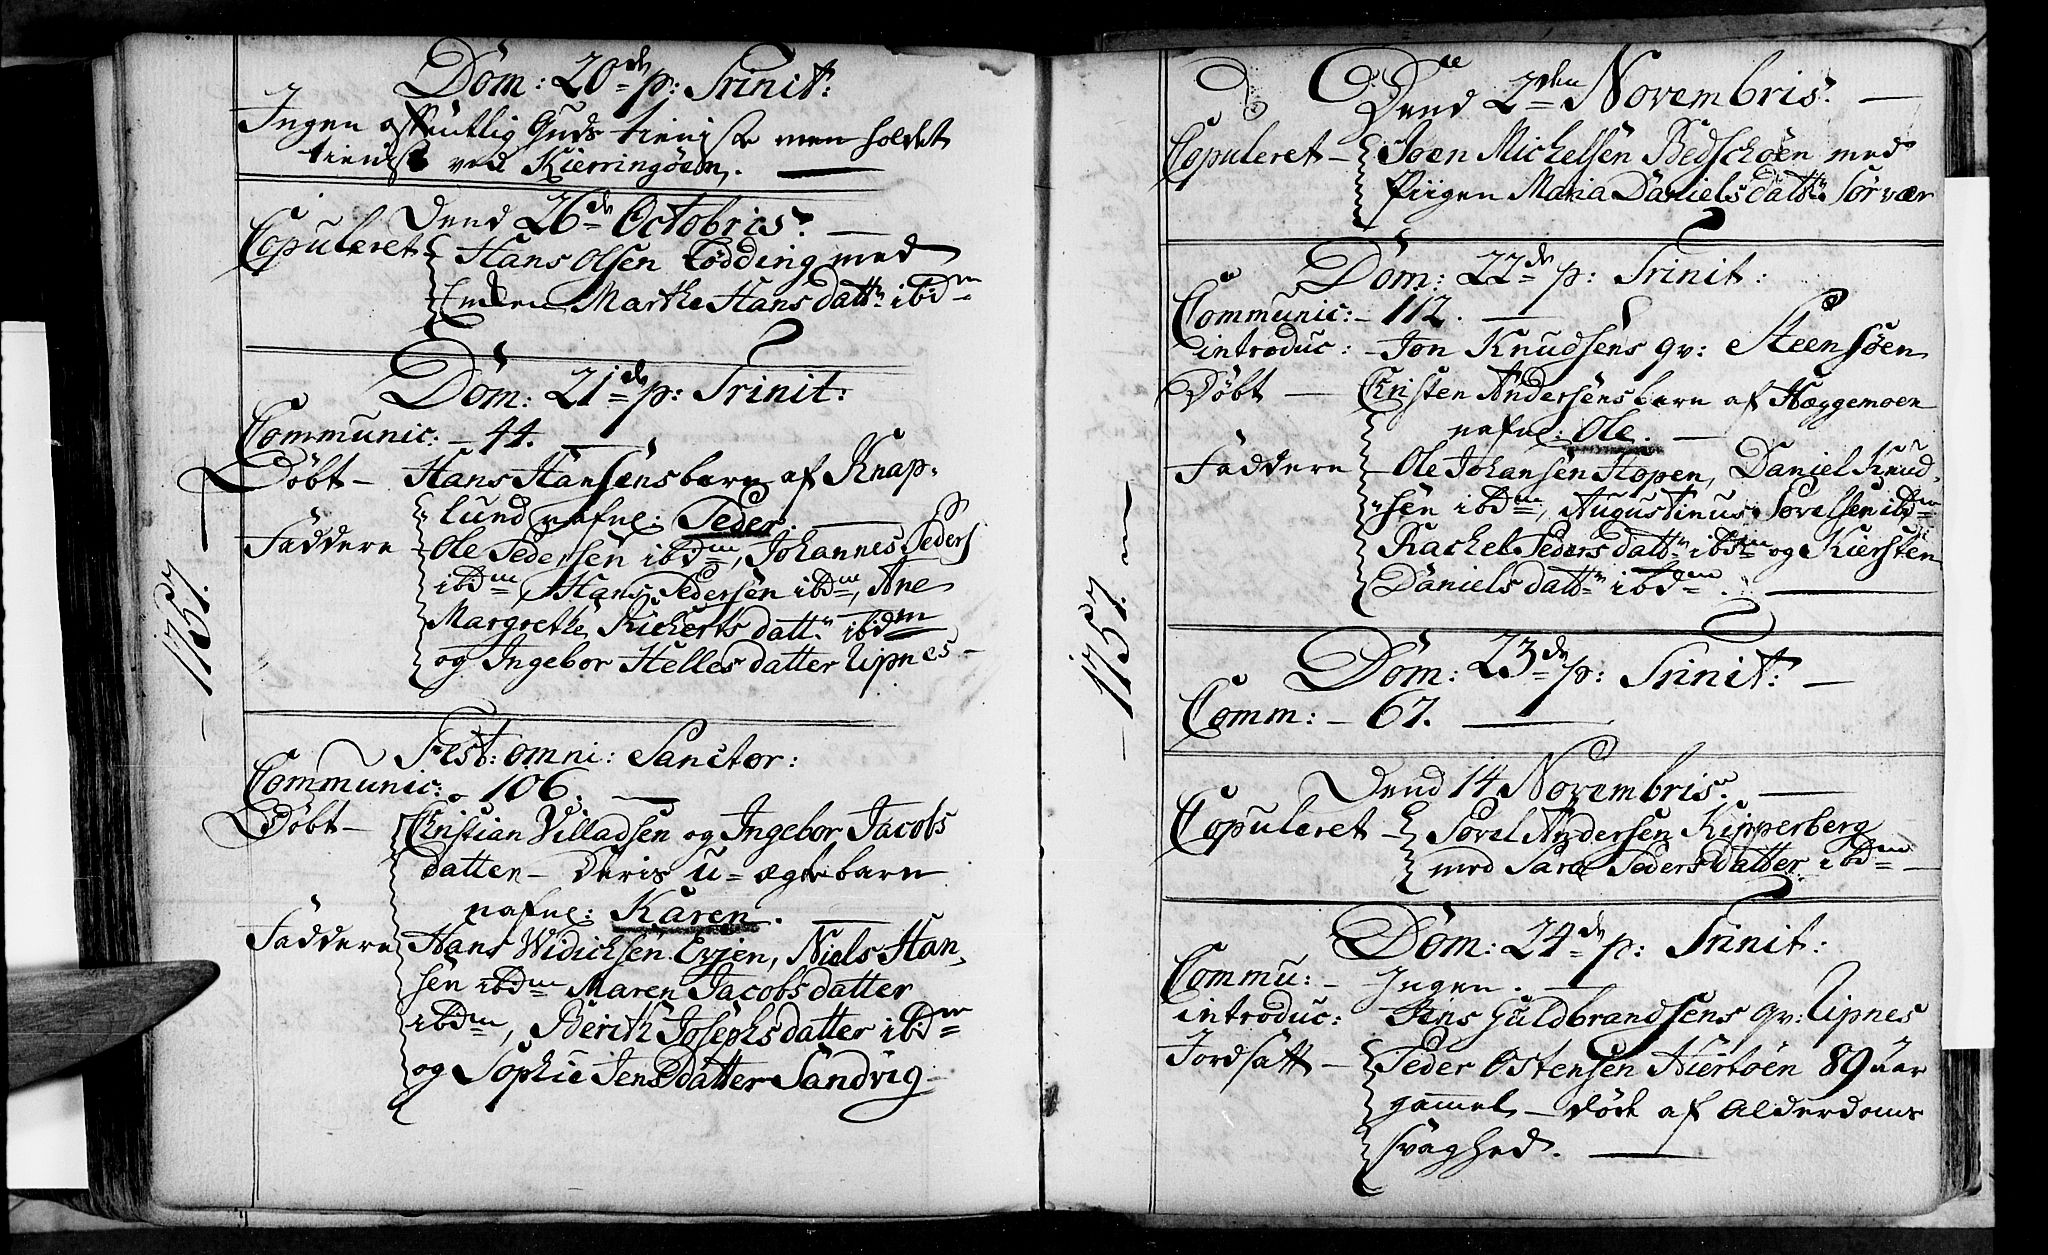 Dom: 20de p: Trinit:
Ingen offentlig Guds tieniste men holdet
tieniste ved Kierringøen.
Dend 26de Octobris.
Copuleret Hans Olsen Lødding med
Enken Marthe Hans datt: ibdm
Dom: 21de p: Trinit:
Communic: 44.
Døbt Hans Hansens barn af Knap-
lund nafnl: Peder.
Faddere Ole Pedersen ibdm, Johannes Peders
ibdm, Hans Pedersen ibdm, Ane
Margrethe Richerts datt: ibdm
og Ingebor Helles datter Lipnes
1757.
Fest: omni: Sanctor:
Communic: 106.
Døbt Christian Villadsen og Ingebor Jacobs
datter - Deris u-ægte barn
nafnl: Karen.
Faddere Hans Widichsen Evjen, Niels Han-
sen ibdm Maren Jacobs datter
ibdm, Berith Josephs datter ibdm
og Sophie Jens datter Sandvig
Dend 2den Novembris.
Copuleret Joen Michelsen Bedschøen med
Piigen Maria Daniels datt: Sørvær
Dom: 22de p: Trinit:
Communic: 112.
introduc: Jon Knudsens qv: Steensøen
Døbt Christen Andersens barn af Hæggemoen
nafnl: Ole.
Faddere Ole Johansen Hopen, Daniel Knud-
sen ibdm, Augustinus Sørelsen ibdm
Rachel Peders datt: ibdm og Kiersten
Daniels datt: ibdm.
1757.
Dom: 23de p: Trinit:
Comm: 67.
Dend 14 Novembris.
Copuleret Sørel Andersen Kipperberg
med Sara Peders datter ibdm
Dom: 24de p: Trinit:
Commu: Ingen.
introduc: Jens Guldbrandsens qv: Lipnes
Jordsatt Peder Ostensen Hiertøen 89 aar
gammel - døde af Alderdoms
svaghed.